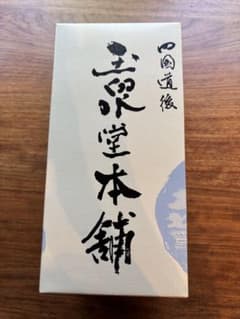 四国道後
玉泉堂本舗